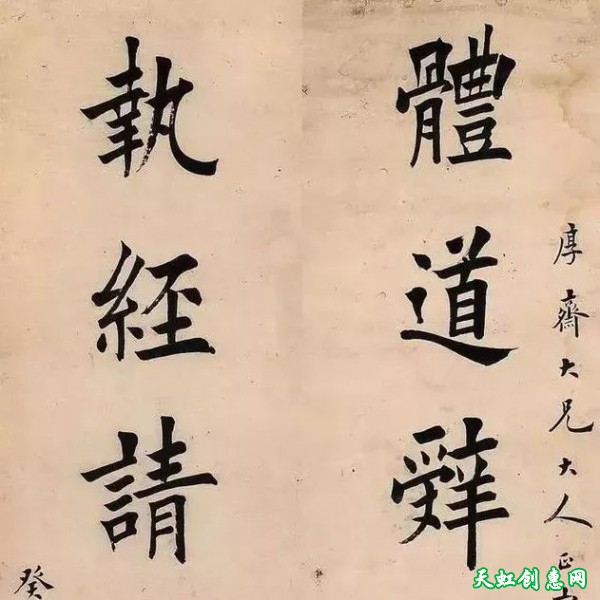 厚齋大兄大人正
體道辤
執經請
癸
天虹创惠网